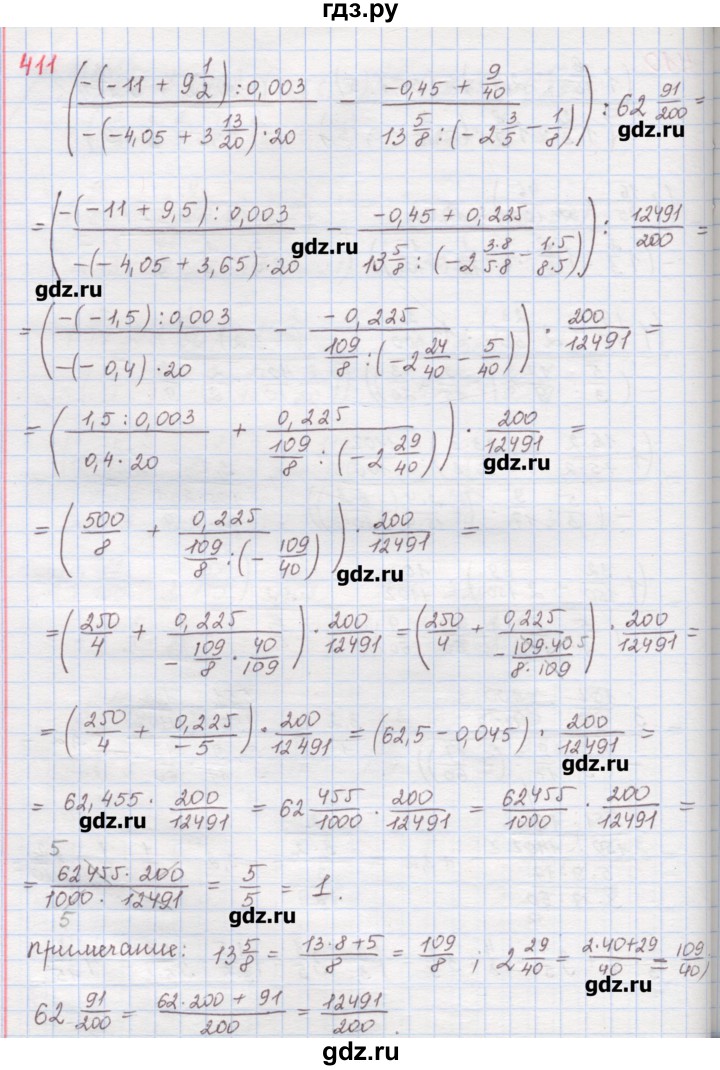 гдз.ру
411 ( (-(-11 + 9 1/2) : 0,003) / (-(-4,05 + 3 13/20) · 20) - (-0,45 + 9/40) / (13 5/8 : (-2 3/5 - 1/8)) ) : 62 91/200 =
gdz.ru
= ( (-(-11 + 9,5) : 0,003) / (-(-4,05 + 3,65) · 20) - (-0,45 + 0,225) / (13 5/8 : (-2 3·8/5·8 - 1·5/8·5)) ) : 12491/200 =
gdz.ru
gdz.ru
= ( (-(-1,5) : 0,003) / (-(-0,4) · 20) - (-0,225) / (109/8 : (-2 24/40 - 5/40)) ) · 200/12491 =
= ( (1,5 : 0,003) / (0,4 · 20) + 0,225 / (109/8 : (-2 29/40)) ) · 200/12491 =
gdz.ru
= ( 500/8 + 0,225 / (109/8 : (-109/40)) ) · 200/12491 =
gdz.ru
= ( 250/4 + 0,225 / (-109/8 · 40/109) ) · 200/12491 = ( 250/4 + 0,225 / (-109·40 5/8·109) ) · 200/12491 =
= ( 250/4 + 0,225/-5 ) · 200/12491 = (62,5 - 0,045) · 200/12491 =
gdz.ru
= 62,455 · 200/12491 = 62 455/1000 · 200/12491 = 62455/1000 · 200/12491 =
gdz.ru
5
= 62455 · 200 / 1000 · 12491 = 5/5 = 1.
5
gdz.ru
примечание: 13 5/8 = 13·8+5/8 = 109/8 ; 2 29/40 = 2·40+29/40 = 109/40 ;
gdz.ru
62 91/200 = 62·200 + 91/200 = 12491/200 .
gdz.ru